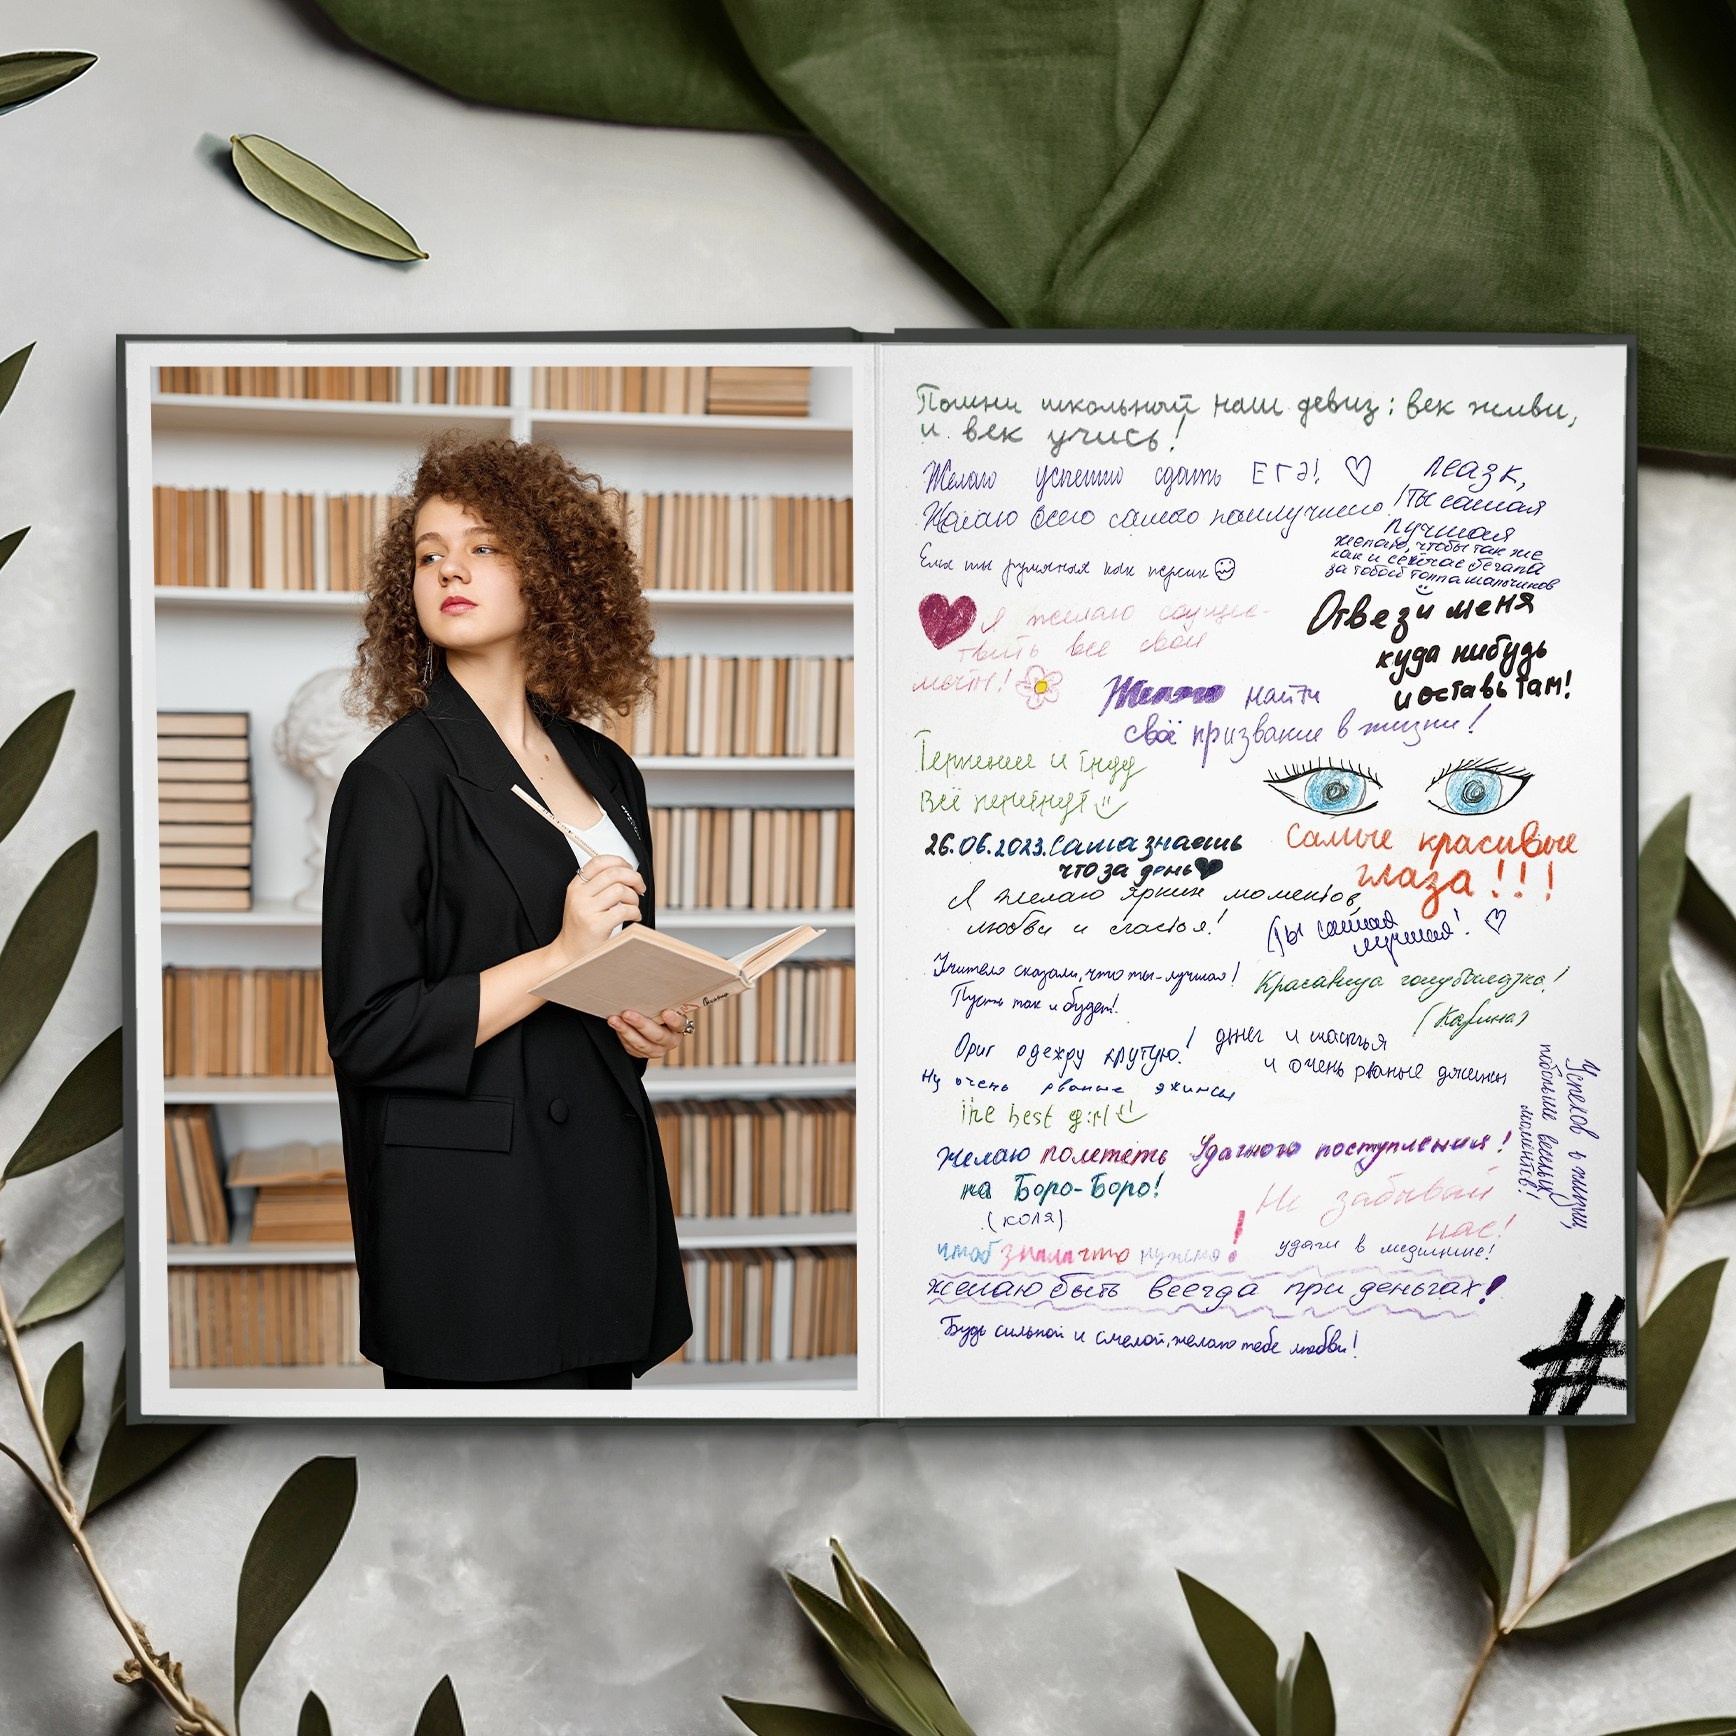 Помни школьный наш девиз: век живи,
и век учись!
Желаю успешно сдать ЕГЭ!
Желаю всего самого наилучшего!
Ты самая
лучшая
желаю, чтобы так же
как и сейчас бегала
за тобой толпа мальчиков
ты румяная как персик
Я желаю осуще-
ствить все свои
мечты!
Отвези меня
куда нибудь
и оставь там!
Желаю найти
своё призвание в жизни!
Терпение и труд
Всё перетрут
26.06.2023. Саша знаешь
что за день
Самые красивые
глаза!!!
Я желаю ярких моментов,
любви и счастья!
Ты самая
лучшая!
Учителя сказали, что ты-лучшая!
Пусть так и будет!
Красавица голубоглазка!
(Карина)
одежду крутую!
денег и счастья
и очень рваные джинсы
Ну очень рваные
The best girl
Успехов в жизни,
побольше весёлых
моментов!
желаю полететь
на Боро-Боро!
(коля)
Удачного поступления!
Не забывай
нас!
чтоб знали что нужно!
удачи в медицине!
желаю быть всегда при деньгах!
Будь сильной и смелой, желаю тебе любви!
#